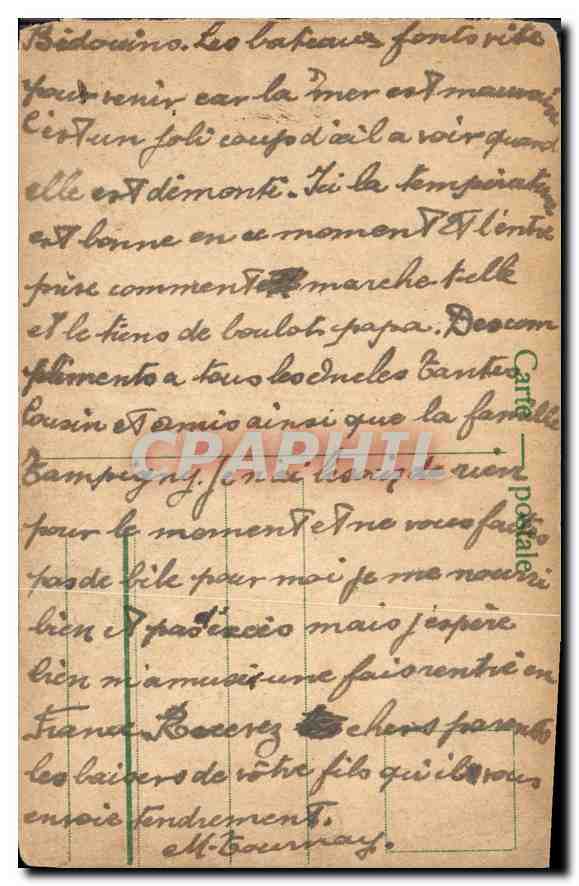 Bédouins. Les bateaux fonts vite
pour venir car la mer est mauvaise
C'est un joli coup d'œil a voir quand
elle est démonté. Ici la température
est bonne en ce moment Et l'entre
prise comment marche-telle
et le tiens de boulot papa. Des com
pliments a tous les Oncles Tantes
Cousin et Amis ainsi que la famille
Tampigny. Je n'ai besoin de rien
pour le moment et ne vous faites
pas de bile pour moi je me nourri
bien et pas d'excès mais j'espère
bien m'amuser une fois rentré en
France. Recevez chers parents
les baisers de vôtre fils qui vous
envoie tendrement.
M. Tournay.
Carte postale
CPARPHIL